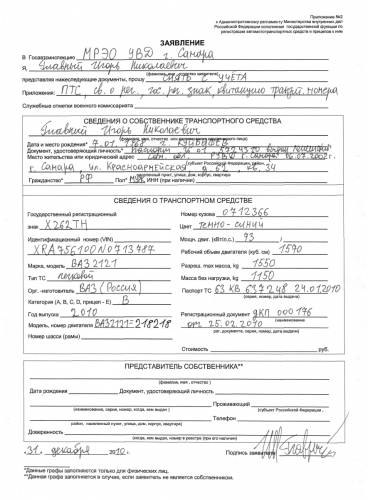 Приложение №2
к Административному регламенту Министерства внутренних дел
Российской Федерации исполнения государственной функции по
регистрации автомототранспортных средств и прицепов к ним
ЗАЯВЛЕНИЕ
В Госавтоинспекцию МРЭО УВД г. Самара
Я, Главный Игорь Николаевич
(фамилия, имя, отчество заявителя)
представляя нижеследующие документы, прошу СНЯТЬ С УЧЕТА
Приложение: ПТС, св. о рег., гос. рег. знак, квитанцию транзит. номера
Служебные отметки военного комиссариата
СВЕДЕНИЯ О СОБСТВЕННИКЕ ТРАНСПОРТНОГО СРЕДСТВА
Главный Игорь Николаевич
Дата и место рождения* 7.01.1968 г. КУЙБЫШЕВ
Документ, удостоверяющий личность* Паспорт 36 01
Место жительства или юридический адрес РУВД г. Самары 16.07.2002 г.
г. Самара, ул. Красноармейская д. 62, кв. 34
Гражданство* РФ Пол* муж. ИНН (при наличии)
СВЕДЕНИЯ О ТРАНСПОРТНОМ СРЕДСТВЕ
Государственный регистрационный
знак Х262ТН
Идентификационный номер (VIN)
XRA756100N0713787
Марка, модель ВАЗ 2121
Тип ТС легковой
Орг.-изготовитель ВАЗ (Россия)
Категория (A, B, C, D, прицеп - E) B
Год выпуска 2010
Модель, номер двигателя ВАЗ2121=218218
Номер шасси (рамы)
Номер кузова 0712366
Цвет темно-синий
Мощн. двиг. (кВт/л.с.) 93
Рабочий объем двигателя (куб. см) 1570
Разреш. max масса, (kg) 1550
Масса без нагрузки, (kg) 1150
Паспорт ТС 63 КВ 637248 24.01.2010
(серия, номер, дата выдачи)
Регистрационный документ ДКП 000176
(наименование)
от 25.02.2010
(серия, номер, дата выдачи)
Стоимость руб.
ПРЕДСТАВИТЕЛЬ СОБСТВЕННИКА**
(фамилия, имя, отчество)
Дата рождения Документ, удостоверяющий личность
(наименование, серия, номер, когда, кем выдан)
Проживающий
(субъект Российской Федерации,
Телефон
район, населенный пункт, улица, дом, корпус, квартира)
Доверенность
(когда, кем выдан, номер в реестре (при его наличии)
«31» декабря 2010 г. Подпись заявителя
*Данные графы заполняются только для физических лиц.
**Данные графы заполняются в случае, если заявитель не является собственником.